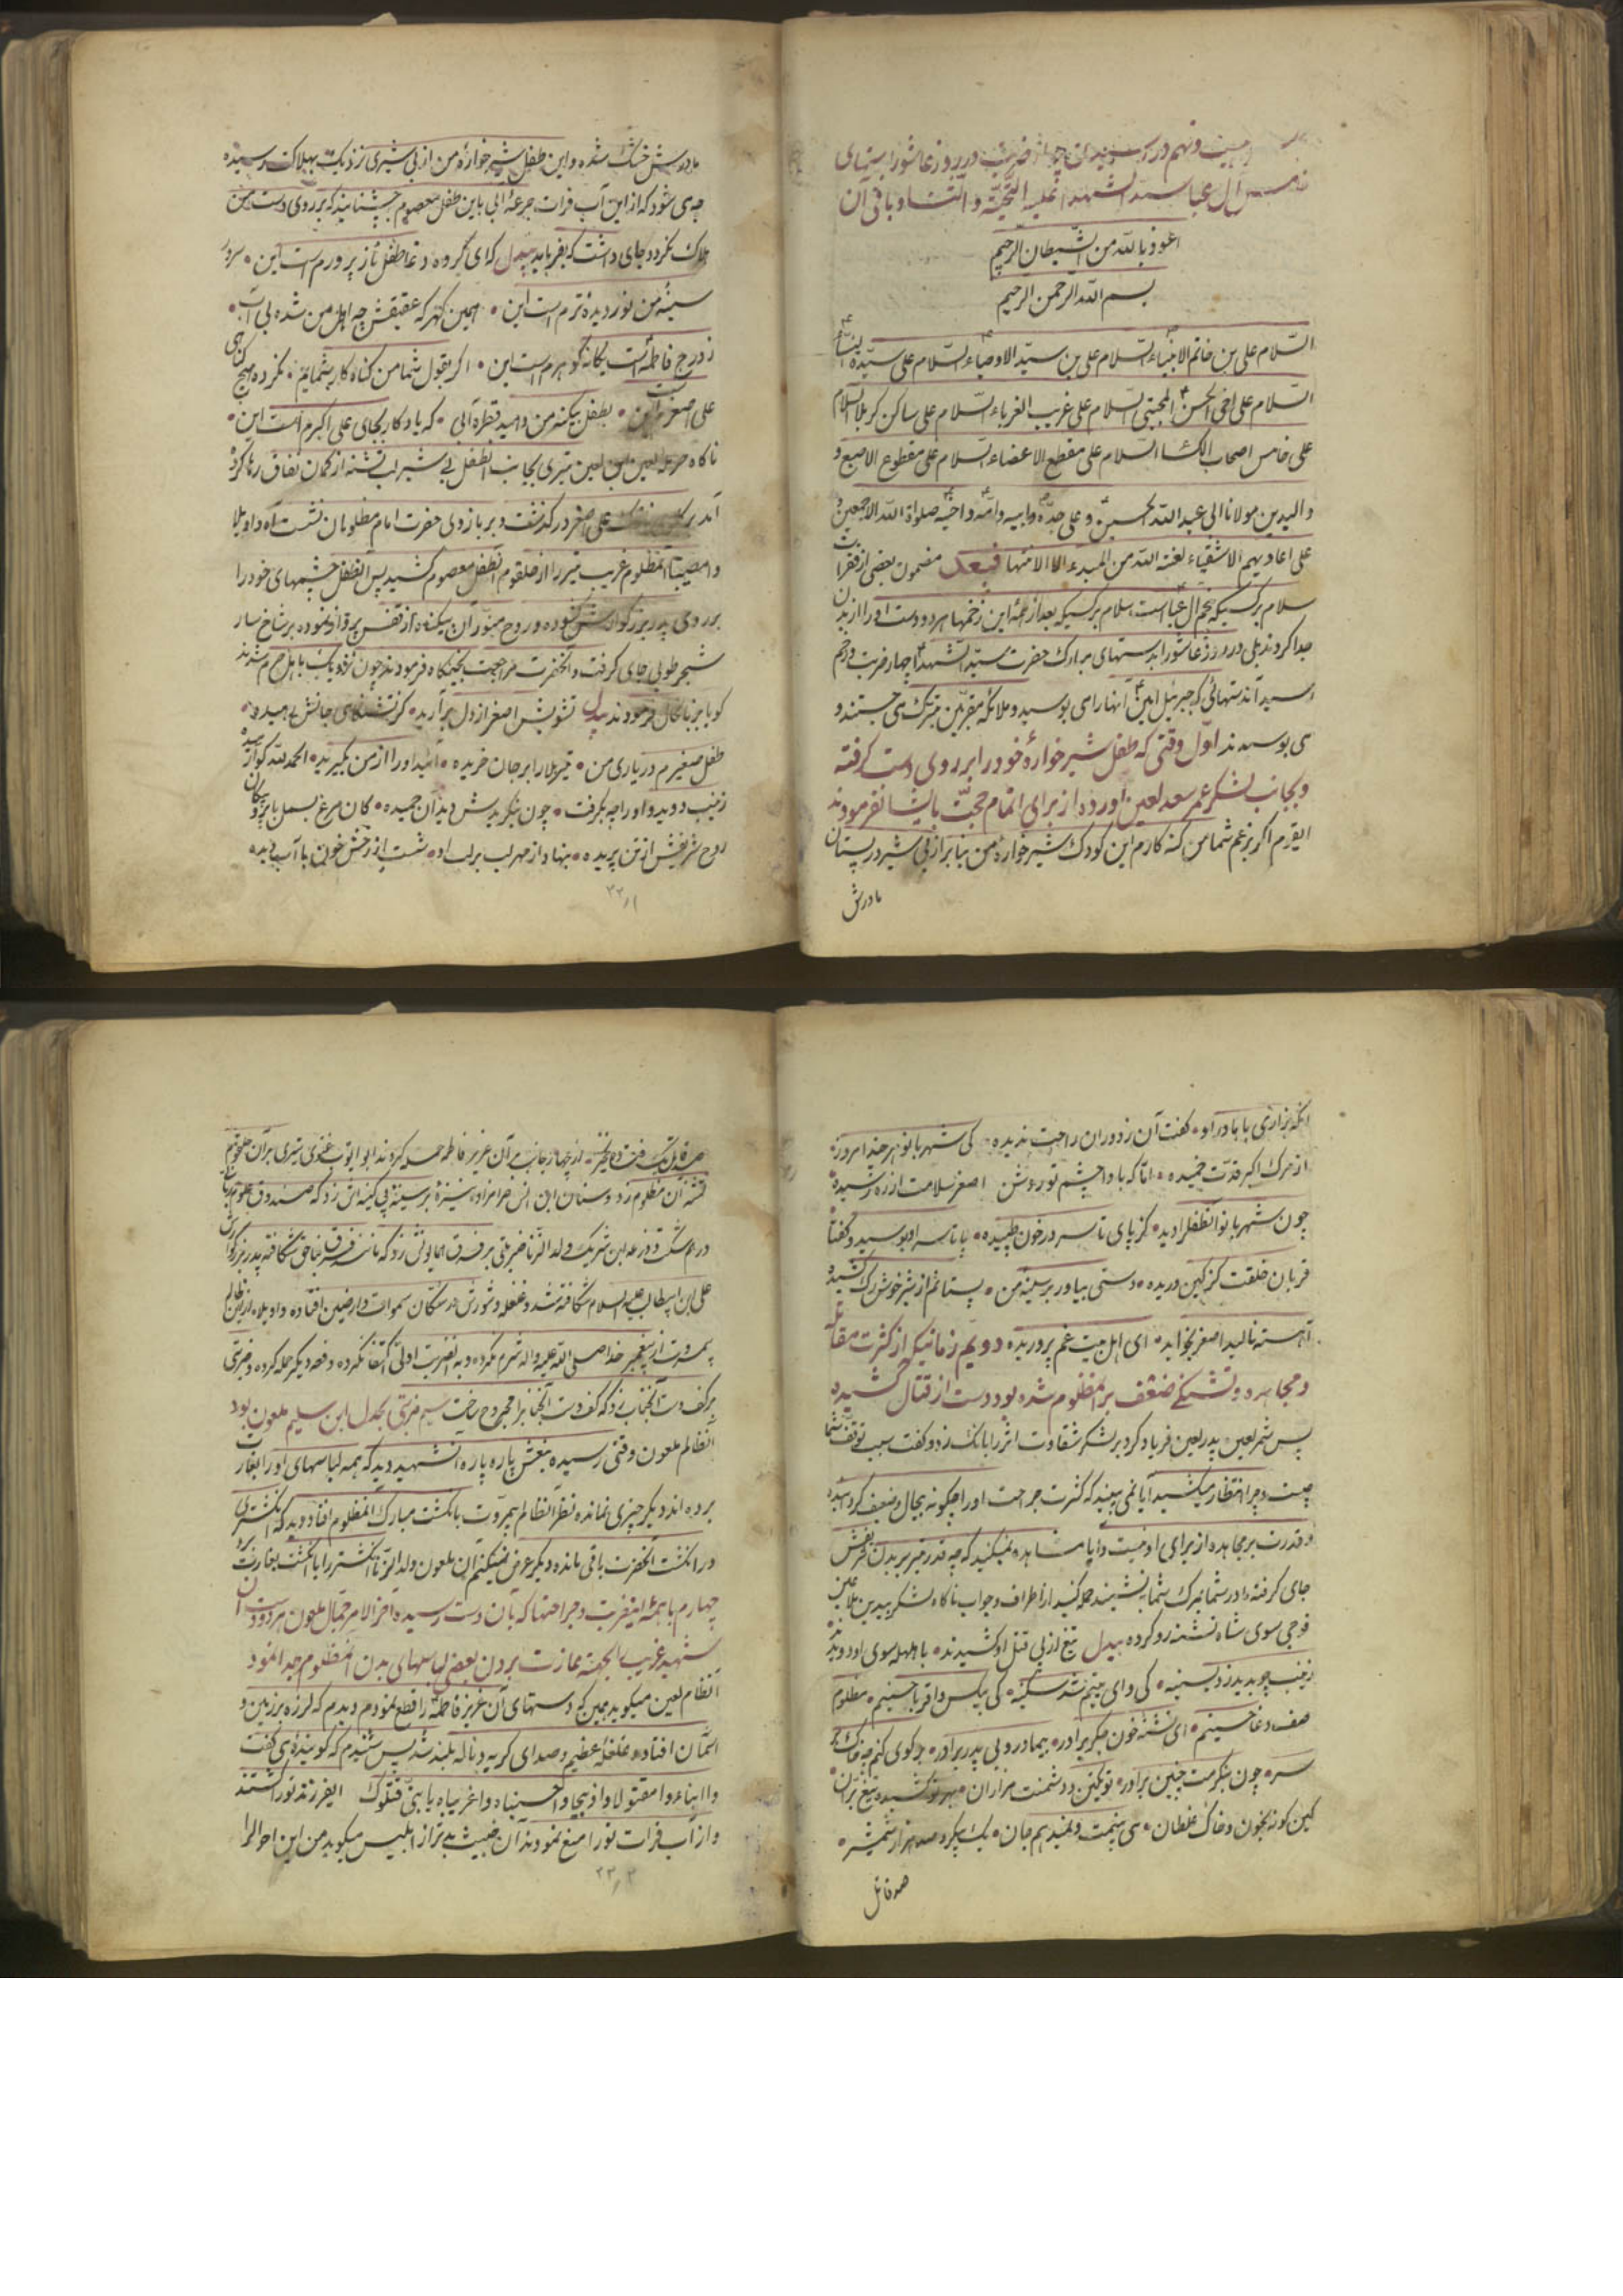 بیست و نهم در رسیدن چهار ضربت در روز عاشورا بدستهای
خامس آل عبا سید الشهدا علیه التحیة و الثناء و باقی آن
اعوذ بالله من الشیطان الرجیم
بسم الله الرحمن الرحیم
السلام علی بن خاتم الانبیاء السلام علی بن سید الاوصیاء السلام علی سیدة النساء
السلام علی اخی الحسن المجتبی السلام علی غریب الغرباء السلام علی ساکن کربلا السلام
علی خامس اصحاب الکساء السلام علی مقطع الاعضاء السلام علی مقطوع الاصبع و
والیدین مولانا ابی عبد الله الحسین و علی جده و ابیه و امه و اخیه صلواة الله الاجمعین و
علی اعادیهم الاشقیاء لعنة الله من المبدء الا الانتها فبعد مضمون بعضی از فقرات
سلام بر کسیکه پنجم آل عبا است سلام بر کسیکه بعد از همهٔ این زخمها هر دو دست او را از بدن
جدا کردند بلی در روز عاشورا بدستهای مبارک حضرت سید الشهدا چهار ضربت و زخم
رسید آندستهائی که جبرئیل امین آنها را می بوسید و ملائکه مقربین تبرک می جستند و
می بوسیدند اول وقتی که طفل شیر خوارهٔ خود را بر روی دست گرفته
و بجانب لشکر عمر سعد لعین آورده از برای اتمام حجت بایشان فرمودند
ایقوم اگر بزعم شما من گنه کارم این کودک شیر خوارهٔ من بنا بر از بی شیر در پستان
مادرش
مادرش خشک شده و این طفل شیر خوارهٔ من از بی شیری نزدیک بهلاکت رسیده
چه می شود که از این آب فرات جرعهٔ آبی باین طفل معصوم بچشنانید که بر روی دست من
هلاک نگردد جای داشت که بفرماید بیدل که ای گروه دغا طفل ناز پرورم است این • سرور
سینهٔ من نور دیدهٔ ترم است این • همین گهر که عقیقش چه اهل من شده بی آب •
ز درج فاطمه است یگانه گوهرم است این • اگر بقول شما من گناه کار شمایم • نکرده هیچ گناهی
علی اصغر است این • بطفل بیگنه من دهید قطرهٔ آبی • که یادگار بجای علی اکبرم است این •
ناگاه حرمله لعین ابن لعین تیری بجانب انطفل بی شیر لب تشنه از کمان نفاق رها کرد
آمد علی اصغر در گذشت و بر بازوی حضرت امام مظلومان نشست آه و اویلا
وا مصیبتا آنمظلوم غریب تیر را از حلقوم آنطفل معصوم کشید پس آنطفل چشمهای خود را
بر روی پدر بزرگوارش گشوده و روح مبور آن بیگناه از قفس پرواز نموده بر شاخ سار
شجر طوبی جای گرفت و انحضرت مراجعت بخیمگاه فرمودند چون نزدیک باهل حرم شدند
گویا بزبانحال فرمودند بیدل تشویش اصغر از دل برآرید • کز تشنگی جانش رهیده •
طفل صغیرم در یاری من • تیر بلا را بر جان خریده • آئید او را از من بگیرید • الحمد لله کو آرمیده
زینب دوید و او را چه بگرفت • چون بنگریدش دید آن حمیده • کان مرغ بسمل با پر پیکان
روح شریفش از تن پریده • بنهاد از مهر لب بر لب او • شست از رخش خون با آب دیده
۳۳/۱
انگه بزاری با مادر او • گفت آن ز دوران راحت ندیده • کی شهربانو هر چند امروز
از مرگ اکبر قدت خمیده • اما که بادا چشم تو روشن اصغر سلامت از ره رسیده
چون شهربانو آنطفل را دید • کز پای تا سر در خون طپیده • پا تا سر او بوسید و گفتا
قربان حلقت کز کین دریده • دستی بیاور بر سینهٔ من • پستانم از شیر خوش رگ کشیده
آهسته نالید اصغر بخوابد • ای اهل بیت غم پروریده دویم زمانیکه از کثرت مقاتله
و مجاهده و تشنگی ضعف بر آنمظلوم شده بود دست از قتال کشیده
پس شمر لعین پدر لعین فریاد کرد بر لشکر شقاوت اثر را بانک زد و گفت سبب توقف شما
چیست و چرا انتظار میکشید آیا نمی بینید که کثرت جراحت او را چگونه بیحال و ضعیف گردانیده
و قدرت بر مجاهده از برای او نیست و ایا مشاهده نمیکنید که چه قدر تیر بر بدن شریفش
جای گرفته مادر شما بمرگ شما بنشیند حمله کنید از اطراف و جوانب ناگاه لشکر بیدین لاعین
فوجی سوی شاه تشنه رو کرده بیدل تیغ از پی قتل او کشیدند • با هلهله سوی او دویدند
زینب چو بدید زد بسینه • کی وای یتیم شد سکینه • کی بیکس و اقربا حسینم • مظلوم
صف دغا حسینم • ای تشنهٔ خون جگر برادر • بیمادر و بی پدر برادر • چو کوی کنم چه خاک بر
سر • چون بنگرمت چنین برادر • تو یکتن و دشمنت هزاران • بر تو کشیده تیغ بران
کین گونه بخون و خاک غلطان • می بینمت و نمیدهم جان • یک پیکر و صد هزار شمشیر •
صد قاتل
صد قاتل یک تن و یک تن • از چهار جانب بر آن عزیز فاطمه حمله کردند ابو ایوب غنوی تیری بر آن حلقوم
تشنه آن مظلوم زد و سنان ابن انس حرامزاده نیزهٔ بر سینهٔ بی کینه اش زد که صندوق علوم ربانی
در هم شکست و زرعه ابن شریک ولد الزنا ضربتی بر فرق همایونش زد که مانند فرق مباحق شکافته پدر بزرگوارش
علی ابن ابیطالب علیه السلام شکافته شد و غلغله و شورش در سکان سموات و ارضین افتاده و اویلاه از این ظالم
بیمروت از پیغمبر خدا صلی الله علیه و اله شرم نکرده و به الضربت اولی اکتفا نکرده دفعه دیگر حمله کرده و ضربتی
بر کف دست آنجناب زد که کف دست آنجناب را مجروح ساخت سیم ضربتی بجدل ابن سلیم ملعون بود
انظالم ملعون وقتی رسید بنعش پاره پاره آنشهید دید که همه لباسهای او را بغارت
برده اند دیگر چیزی نمانده نظر آنظالم بیمروت بانگشت مبارک آنمظلوم افتاد دید که انگشتری
در انگشت انحضرت باقی مانده دیگر عرض نمیکنم آن ملعون ولد الزنا انگشتر را با انگشت بغارت برد
چهارم با همهٔ اینضربت و جراحتها که بان دست رسیده آخر الامر جمال ملعون هر دو دست آن
شهید غریب الجهته بغارت بردن بعضی لباسهای بدن آنمظلوم جدا نمود
انظالم لعین میگوید همین که دستهای آن عزیز فاطمه را قطع نمودم دیدم که لرزه بر زمین و
اسمان افتاده غلغلهٔ عظیم و صدای گریه و ناله بلند شد پس شنیدم که گویندهٔ می گفت
وا ابناه وا مقتولا وا ذبیحا وا حسیناه وا غریباه یا بنی قتلوک ایفرزند تو را کشتند
و از آب فرات تو را منع نمودند آن خبیث بدتر از ابلیس میگوید من این احوال را
۳۳/۲